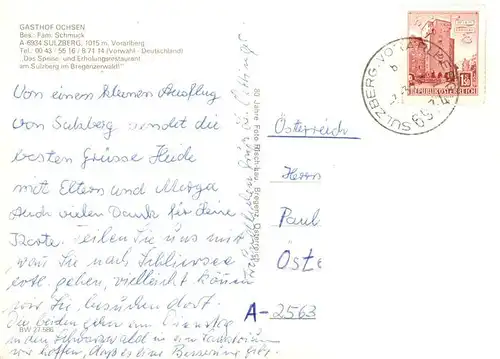 GASTHOF OCHSEN
Bes. Fam. Schmuck
A 6934 SULZBERG, 1015 m, Vorarlberg
Tel. 00 43 - 55 16 / 8 71 14 (Vorwahl - Deutschland)
„Das Speise- und Erholungsrestaurant
am Sulzberg im Bregenzerwald!"
Von einem kleinen Ausflug
von Sulzberg sendet die
besten Grüsse Heide
mit Eltern und
Auch vielen Dank für deine
Karte. Teilen Sie uns mit
wan Sie nach Schliersee
evtl. gehen, vielleicht können
wir Sie besuchen dort.
Die beiden gehn am Dienstag
in den Schwarzwald in ein Sanatorium
wir hoffen, daß es eine Besserung gibt.
BW 27.586
80 Jahre Foto Risch-Lau, Bregenz, Österreich
REPUBLIK ÖSTERREICH
Österreich
Herrn
Paul
Öste
A-2563